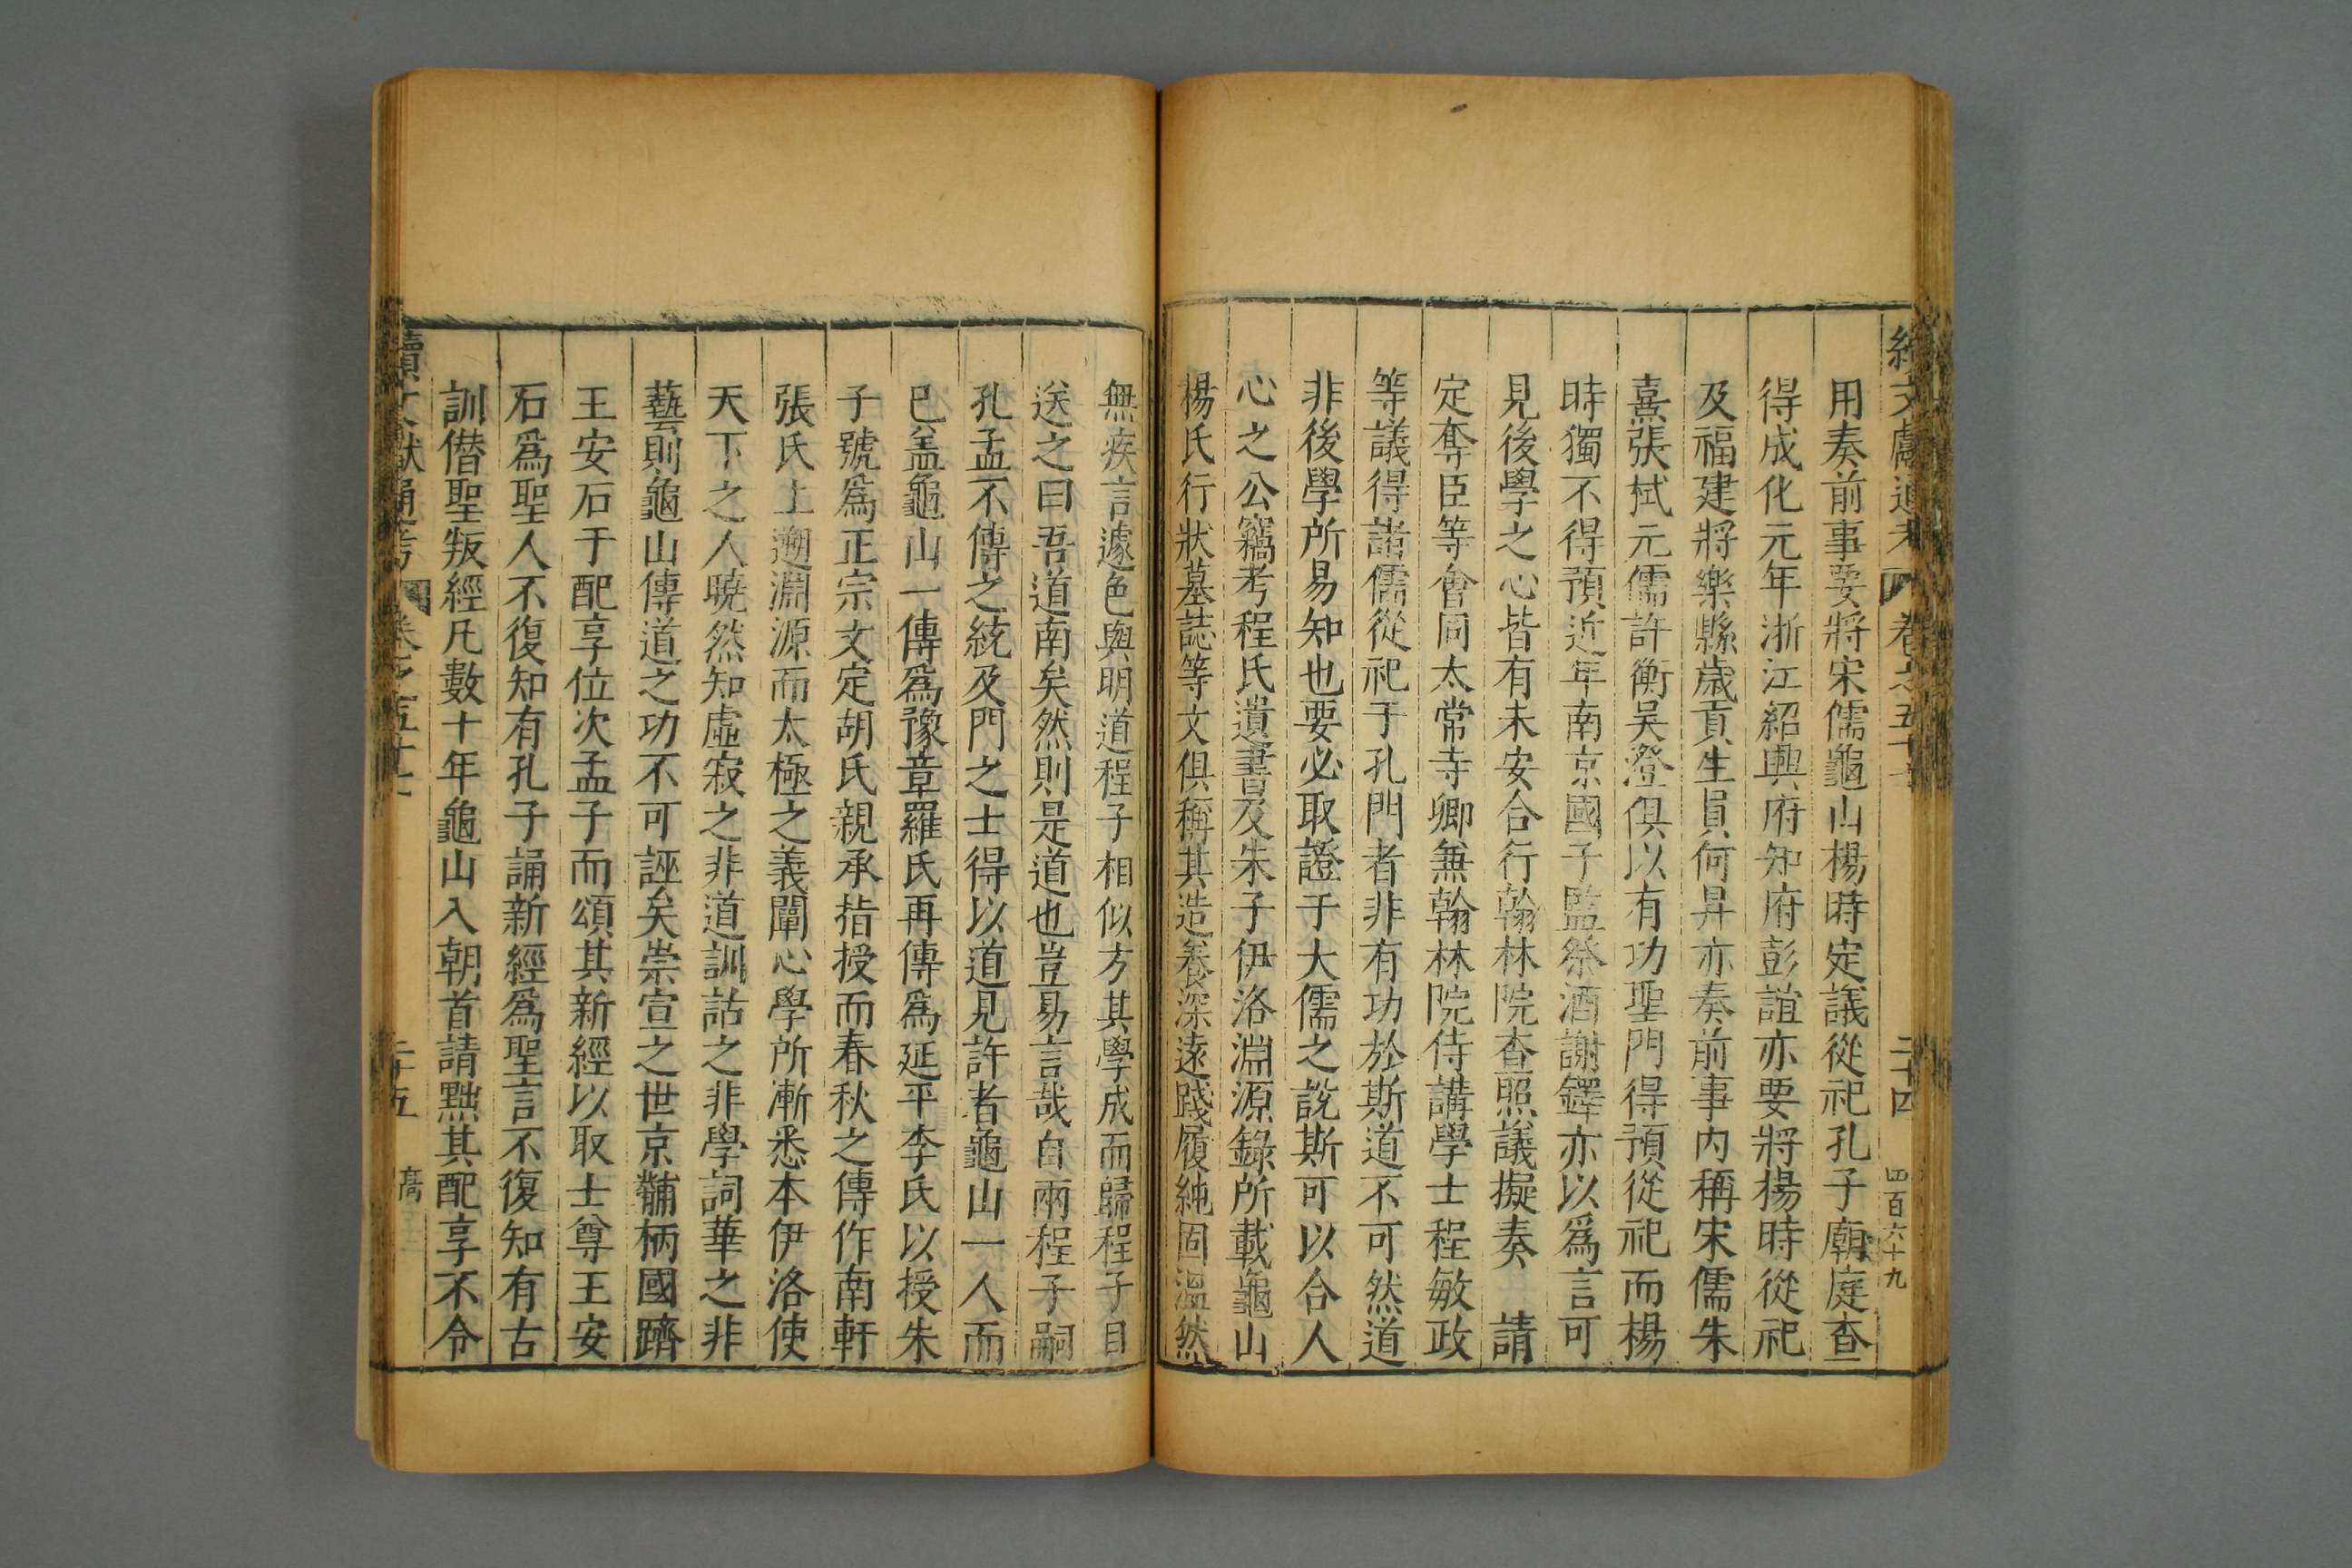 續文獻通考 卷之五十 二十四 四百六十九
用奏前事要將宋儒龜山楊時定議從祀孔子廟庭查
得成化元年浙江紹興府知府彭誼亦要將楊時從祀
及福建將樂縣歲貢生員何昇亦奏前事内稱宋儒朱
熹張栻元儒許衡吴澄俱以有功聖門得預從祀而楊
時獨不得預近年南京國子監祭酒謝鐸亦以爲言可
見後學之心皆有未安合行翰林院查照議擬奏 請
定奪臣等會同太常寺卿兼翰林院侍講學士程敏政
等議得諸儒從祀于孔門者非有功於斯道不可然道
非後學所易知也要必取證于大儒之說斯可以合人
心之公竊考程氏遺書及朱子伊洛淵源錄所載龜山
楊氏行狀墓誌等文俱稱其造養深遠踐履純固溫然
無疾言遽色與明道程子相似方其學成而歸程子目
送之曰吾道南矣然則是道也豈易言哉自兩程子嗣
孔孟不傳之統及門之士得以道見許者龜山一人而
已盖龜山一傳爲豫章羅氏再傳爲延平李氏以授朱
子號爲正宗文定胡氏親承指授而春秋之傳作南軒
張氏上遡淵源而太極之義闡心學所漸悉本伊洛使
天下之人曉然知虛寂之非道訓詁之非學詞華之非
藝則龜山傳道之功不可誣矣崇宣之世京黼柄國躋
王安石于配享位次孟子而頌其新經以取士尊王安
石爲聖人不復知有孔子誦新經爲聖言不復知有古
訓僭聖叛經凡數十年龜山入朝首請黜其配享不令
續文獻通考 卷之五十 二十五 高